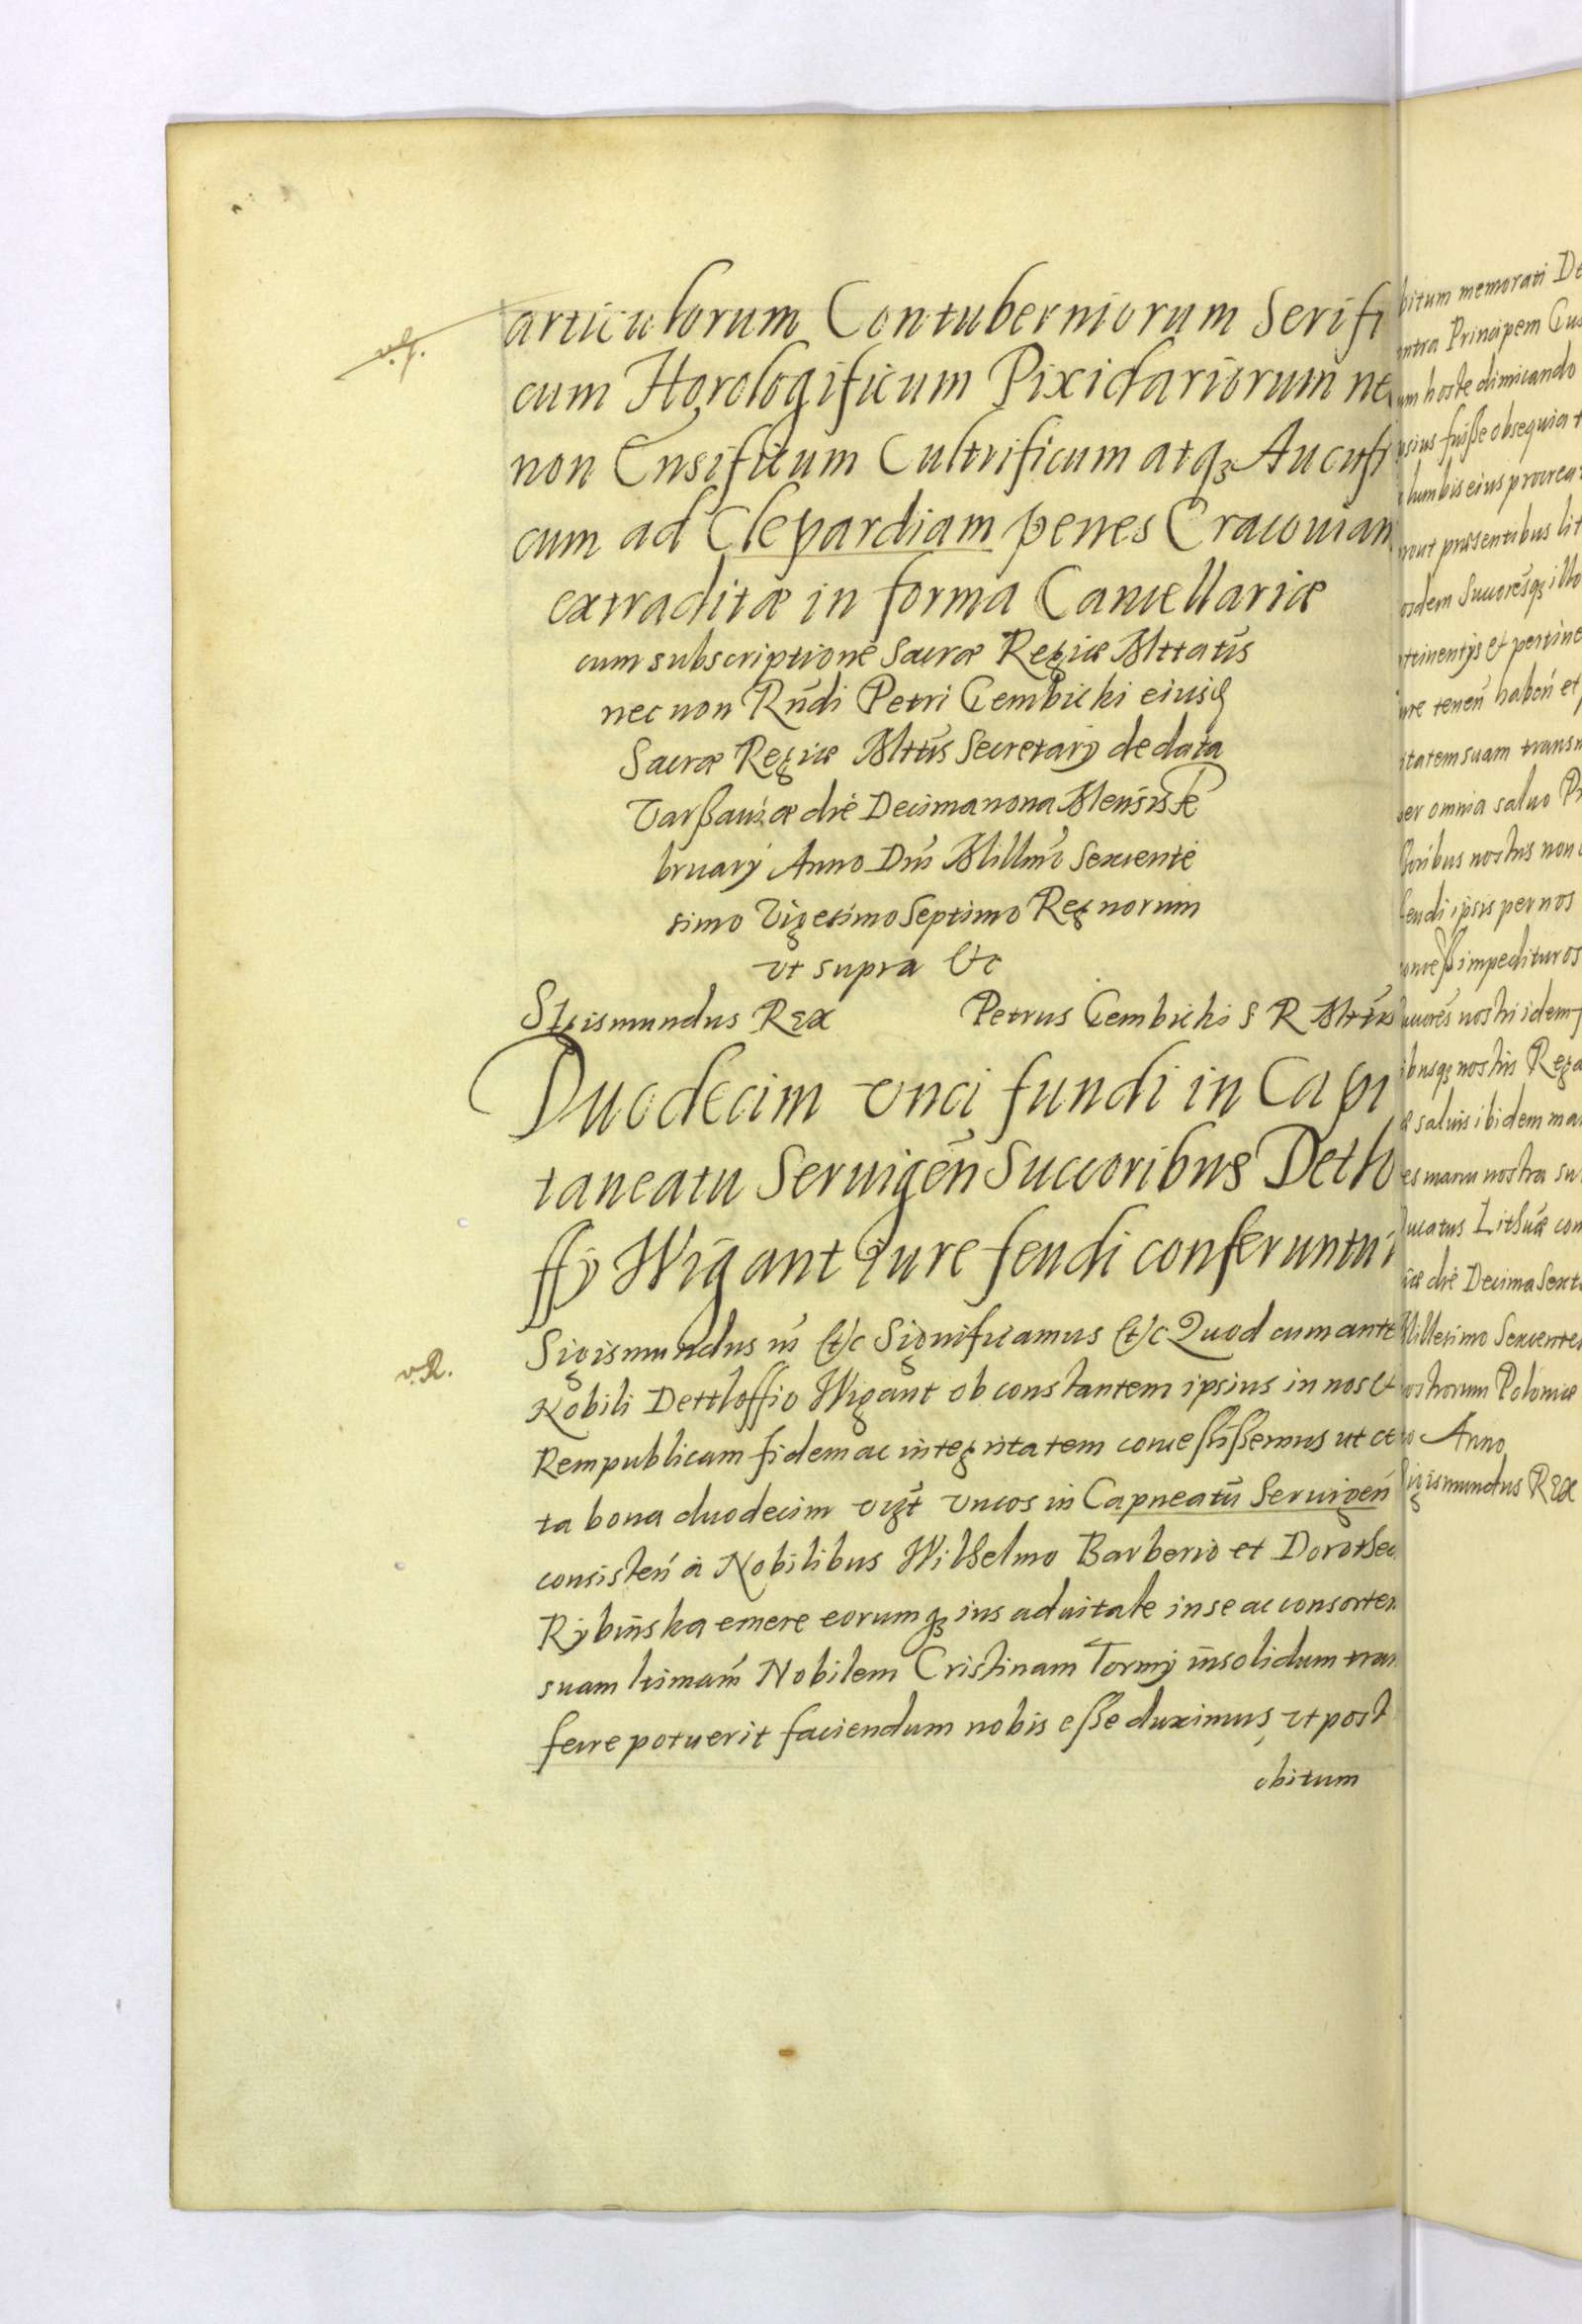 articulorum Contuberniorum Serifi
cum Horologificum Pixidariorum ne
non Ensificum Cultrificum atqꝫ Aucufi
cum ad Clepardiam penes Cracouiam
extraditæ in forma Cancellariæ
cum subscriptione Sacræ Regiæ Mttatis
nec non Rńdi Petri Gembicki eiusq
Sacræ Regiæ Mttis Secretarÿ de data
Varßauiæ die Decimanona Mensis Fe
bruarÿ Anno Dni Millmo Sexcente
simo Vigesimo Septimo Regnorum
vt supra &c
Sigismundus Rex Petrus Gembicki S R Mttis
Duodecim vnci fundi in Capi
taneatu Seruigen Succoribus Detlo
ffÿ Wigant Jure feudi conferuntur
v.R.
Sigismundus &c Significamus &c Quod cum ante
Nobili Dettloffio Wigant ob constantem ipsius in nos &
Rempublicam fidem ac integritatem conceßißemus ut cer
ta bona duodecim vizt vncos in Capneatu Seruigen
consisten à Nobilibus Wilhelmo Barberio et Dorothea
Rÿbinska emere eorumqꝫ ius aduitale in se ac consortem
suam ltimam Nobilem Cristinam Tormÿ insolidum trans
ferre potuerit faciendum nobis eße duximus, vt post
obitum
bitum memorati De
ntra Principem Gus
um hoste dimicando
psius fuiße obsequia t
lumbis eius procrea
rout præsentibus lit
osdem Succoresqꝫ illo
ttinentÿs & pertine
ure tenen haben et
itatem suam transm
er omnia saluo
ßoribus nostris non
feudi ipsis per nos
onceß impedituros
uccores nostri idem
ibusqꝫ nostris Rega
æ saluis ibidem ma
es manu nostra su
Ducatus Lithuæ con
iæ die Decima Sexta
Millesimo Sexcente
ostrorum Poloniæ
o Anno
Sigismundus Rex